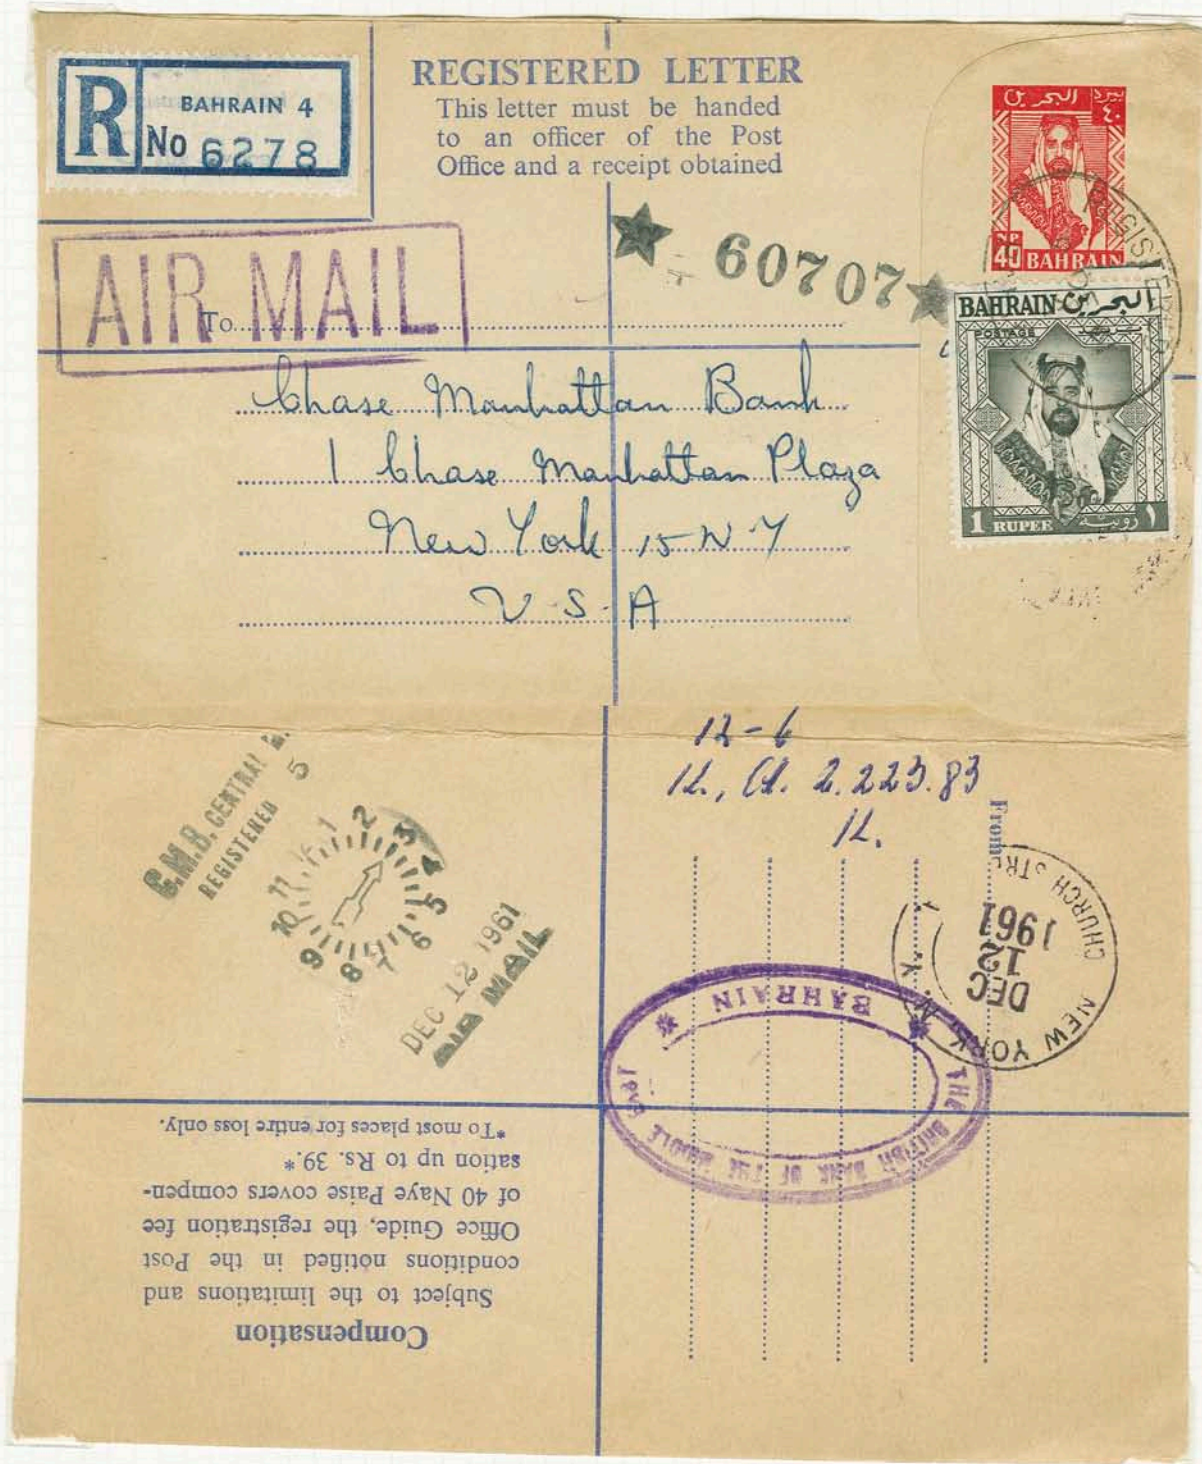 REGISTERED LETTER
This letter must be handed
to an officer of the Post
Office and a receipt obtained
R
BAHRAIN 4
No 6278
البحرين
٤٠
NP
40 BAHRAIN
REGISTERED
AIR MAIL
60707
To
BAHRAIN البحرين
POSTAGE
1 RUPEE روبية ١
Chase Manhattan Bank
1 Chase Manhattan Plaza
New York 15 N Y
U.S.A
12-6
2.223.83
C.M.B. CENTRAL
REGISTERED 5
1 2 3 4 5 6 7 8 9 10 11
DEC 12 1961
AIR MAIL
From
NEW YORK
CHURCH
DEC
12
1961
THE BRITISH BANK OF THE MIDDLE EAST
BAHRAIN
Compensation
Subject to the limitations and
conditions notified in the Post
Office Guide, the registration fee
of 40 Naye Paise covers compen-
sation up to Rs. 39.*
*To most places for entire loss only.